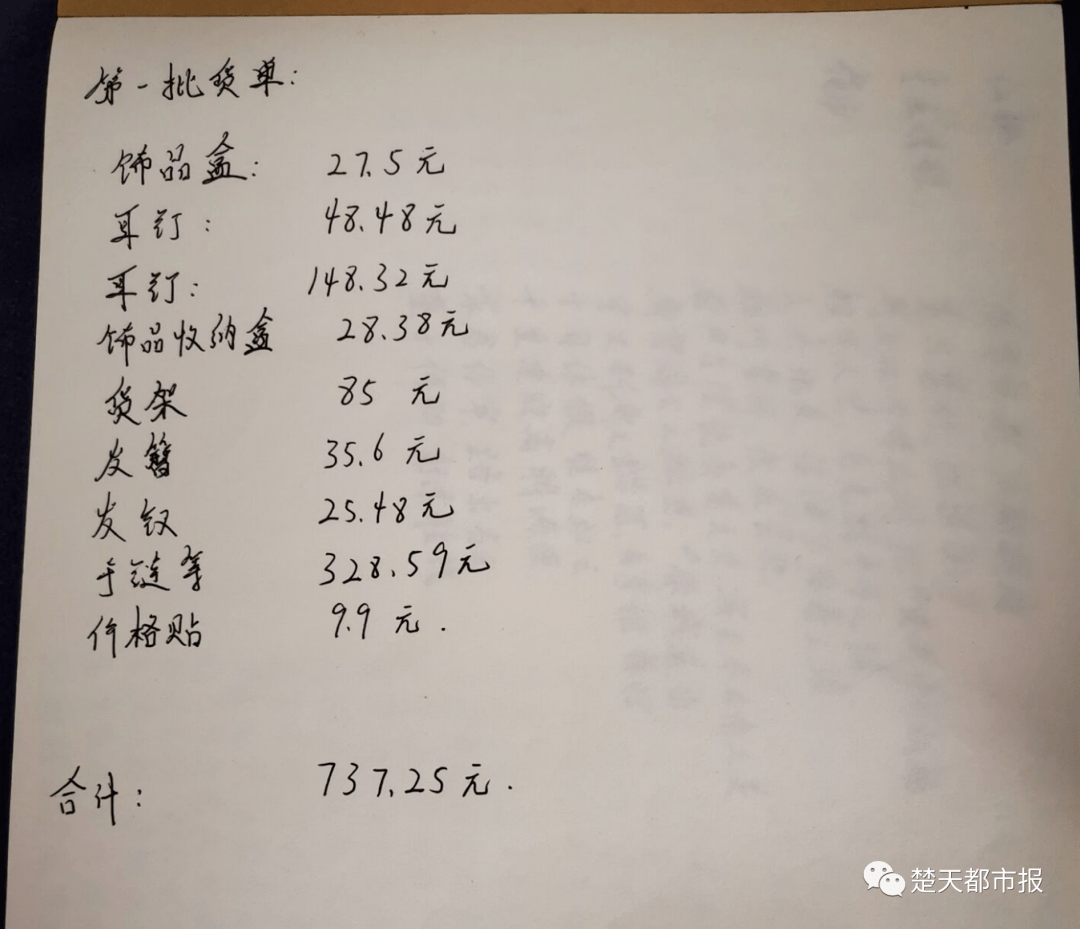 第一批货单:
饰品盒: 27.5元
耳钉: 48.48元
耳钉: 148.32元
饰品收纳盒 28.38元
货架 85 元
发簪 35.6元
发钗 25.48元
手链等 328.59元
价格贴 9.9元.
合计: 737.25元.
楚天都市报